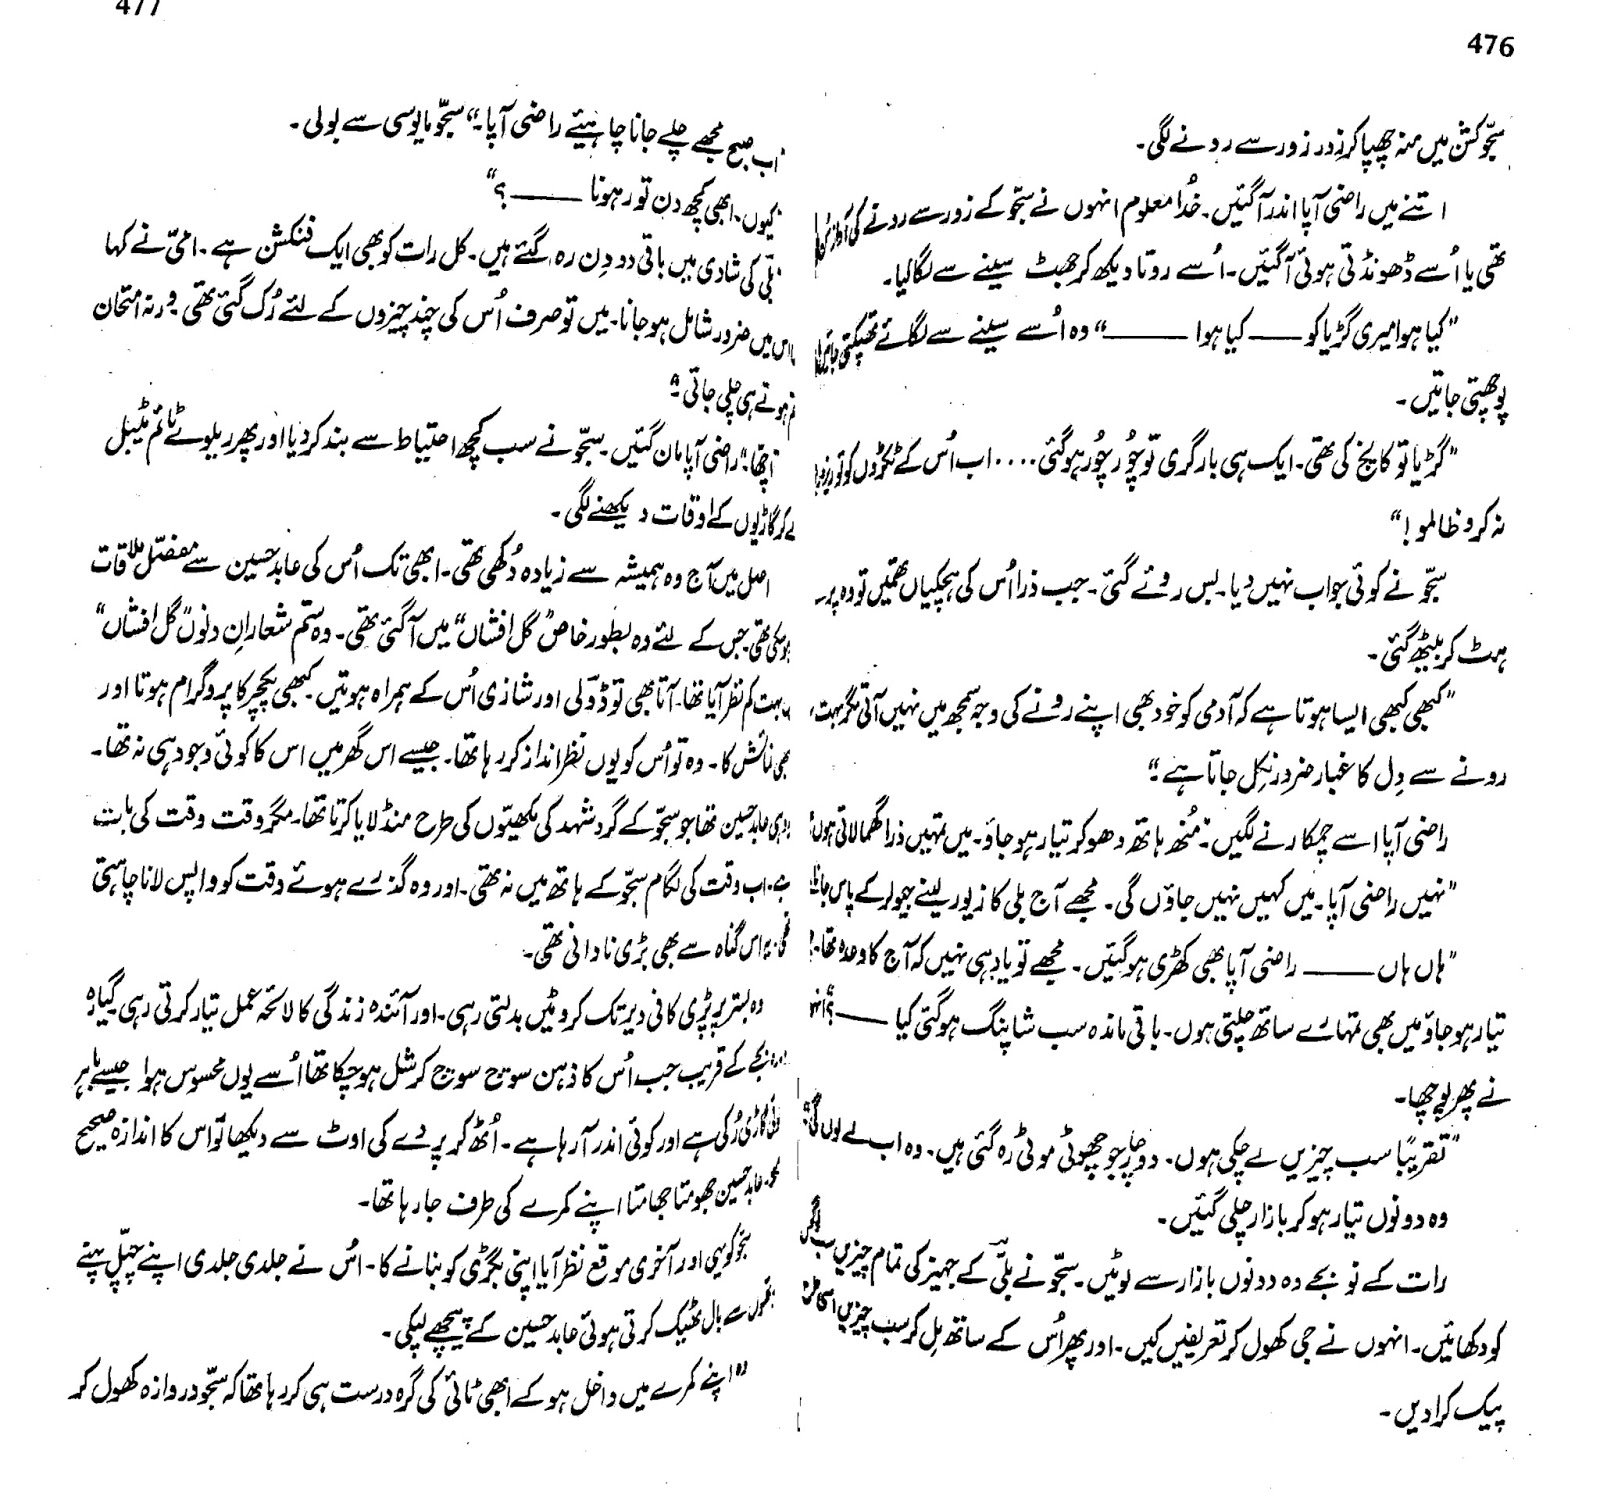 476
سجّو کشن میں منہ چھپا کر زور زور سے رونے لگی۔
اتنے میں راضی آپا اندر آگئیں۔ خُدا معلوم انہوں نے سجّو کے زور سے رونے کی آواز
تھی یا اُسے ڈھونڈتی ہوئی آگئیں۔ اُسے روتا دیکھ کر جھٹ سینے سے لگا لیا۔
”کیا ہوا میری گڑیا کو —— کیا ہوا ——“ وہ اُسے سینے سے لگائے تھپکتی
پوچھتی جاتیں۔
”گڑیا تو کانچ کی تھی۔ ایک ہی بار گری تو چُور چُور ہوگئی .... اب اُس کے ٹکڑوں کو تو
نہ کرو ظالمو!“
سجّو نے کوئی جواب نہیں دیا۔ بس روئے گئی۔ جب ذرا اُس کی ہچکیاں تھمیں تو وہ
ہٹ کر بیٹھ گئی۔
”کبھی کبھی ایسا ہوتا ہے کہ آدمی کو خود بھی اپنے رونے کی وجہ سمجھ میں نہیں آتی مگر بہت
رونے سے دِل کا غبار ضرور نِکل جاتا ہے۔“
راضی آپا اسے چمکارنے لگیں۔ ”مُنھ ہاتھ دھو کر تیار ہو جاؤ۔ میں تمہیں ذرا گھما لاتی ہوں“
”نہیں راضی آپا۔ میں کہیں نہیں جاؤں گی۔ مجھے آج بلی کا زیور لینے جیولر کے پاس جانا
”ہاں ہاں —— راضی آپا بھی کھڑی ہوگئیں۔ مجھے تو یاد ہی نہیں کہ آج کا وعدہ تھا۔
تیار ہو جاؤ میں بھی تمہارے ساتھ چلتی ہوں۔ باقی ماندہ سب شاپنگ ہوگئی کیا ——؟“
نے پھر پوچھا۔
”تقریباً سب چیزیں لے چکی ہوں۔ دو چار جو چھوٹی موٹی رہ گئی ہیں۔ وہ اب لے لوں گی“
وہ دونوں تیار ہو کر بازار چلی گئیں۔
رات کے نو بجے وہ دونوں بازار سے لوٹیں۔ سجّو نے بلّی کے جہیز کی تمام چیزیں سب
کو دکھائیں۔ انہوں نے جی کھول کر تعریفیں کیں۔ اور پھر اُس کے ساتھ مِل کر سب چیزیں
پیک کرا دیں۔
477
اب صبح مجھے چلے جانا چاہیئے راضی آپا۔“ سجّو مایوسی سے بولی۔
کیوں۔ ابھی کچھ دن تو رہونا ——؟“
بلّی کی شادی میں باقی دو دِن رہ گئے ہیں۔ کل رات کو بھی ایک فنکشن ہے۔ امّی نے کہا
اس میں ضرور شامل ہو جانا۔ میں تو صرف اُس کی چند چیزوں کے لئے رُک گئی تھی ورنہ امتحان
ہوتے ہی چلی جاتی۔“
اچّھا۔“ راضی آپا مان گئیں۔ سجّو نے سب کچھ احتیاط سے بند کر دیا اور پھر ریلوے ٹائم ٹیبل
لے کر گاڑیوں کے اوقات دیکھنے لگی۔
اصل میں آج وہ ہمیشہ سے زیادہ دُکھی تھی۔ ابھی تک اُس کی عابد حسین سے مفصّل ملاقات
ہو سکی تھی جس کے لئے وہ بطور خاص ”گل افشاں“ میں آگئی تھی۔ وہ ستم شعار اِن دنوں ”گل افشاں“
بہت کم نظر آیا تھا۔ آتا بھی تو ڈولی اور شازی اُس کے ہمراہ ہوتیں۔ کبھی پکچر کا پروگرام ہوتا اور
نمائش کا۔ وہ تو اُس کو یوں نظر انداز کر رہا تھا۔ جیسے اس گھر میں اس کا کوئی وجود ہی نہ تھا۔
عابد حسین تھا جو سجّو کے گرد شہد کی مکھیّوں کی طرح منڈلایا کرتا تھا۔ مگر وقت وقت کی بات
ہے۔ اب وقت کی لگام سجّو کے ہاتھ میں نہ تھی۔ اور وہ گزرے ہوئے وقت کو واپس لانا چاہتی
یہ اس گناہ سے بھی بڑی نادانی تھی۔
وہ بستر پر پڑی کافی دیر تک کروٹیں بدلتی رہی۔ اور آئندہ زندگی کا لائحہ عمل تیار کرتی رہی گیارہ
بجے کے قریب جب اُس کا ذہن سوچ سوچ کر شل ہو چکا تھا اُسے یوں محسوس ہوا جیسے باہر
گاڑی رُکی ہے اور کوئی اندر آ رہا ہے۔ اُٹھ کر پردے کی اوٹ سے دیکھا تو اس کا اندازہ صحیح
عابد حسین جھومتا جھامتا اپنے کمرے کی طرف جا رہا تھا۔
سجّو کو یہی اور آخری موقع نظر آیا اپنی بگڑی کو بنانے کا۔ اس نے جلدی جلدی اپنے چپّل پہنے
سے بال ٹھیک کرتی ہوئی عابد حسین کے پیچھے لپکی۔
”اپنے کمرے میں داخل ہو کے ابھی ٹائی کی گرہ درست ہی کر رہا تھا کہ سجّو دروازہ کھول کر